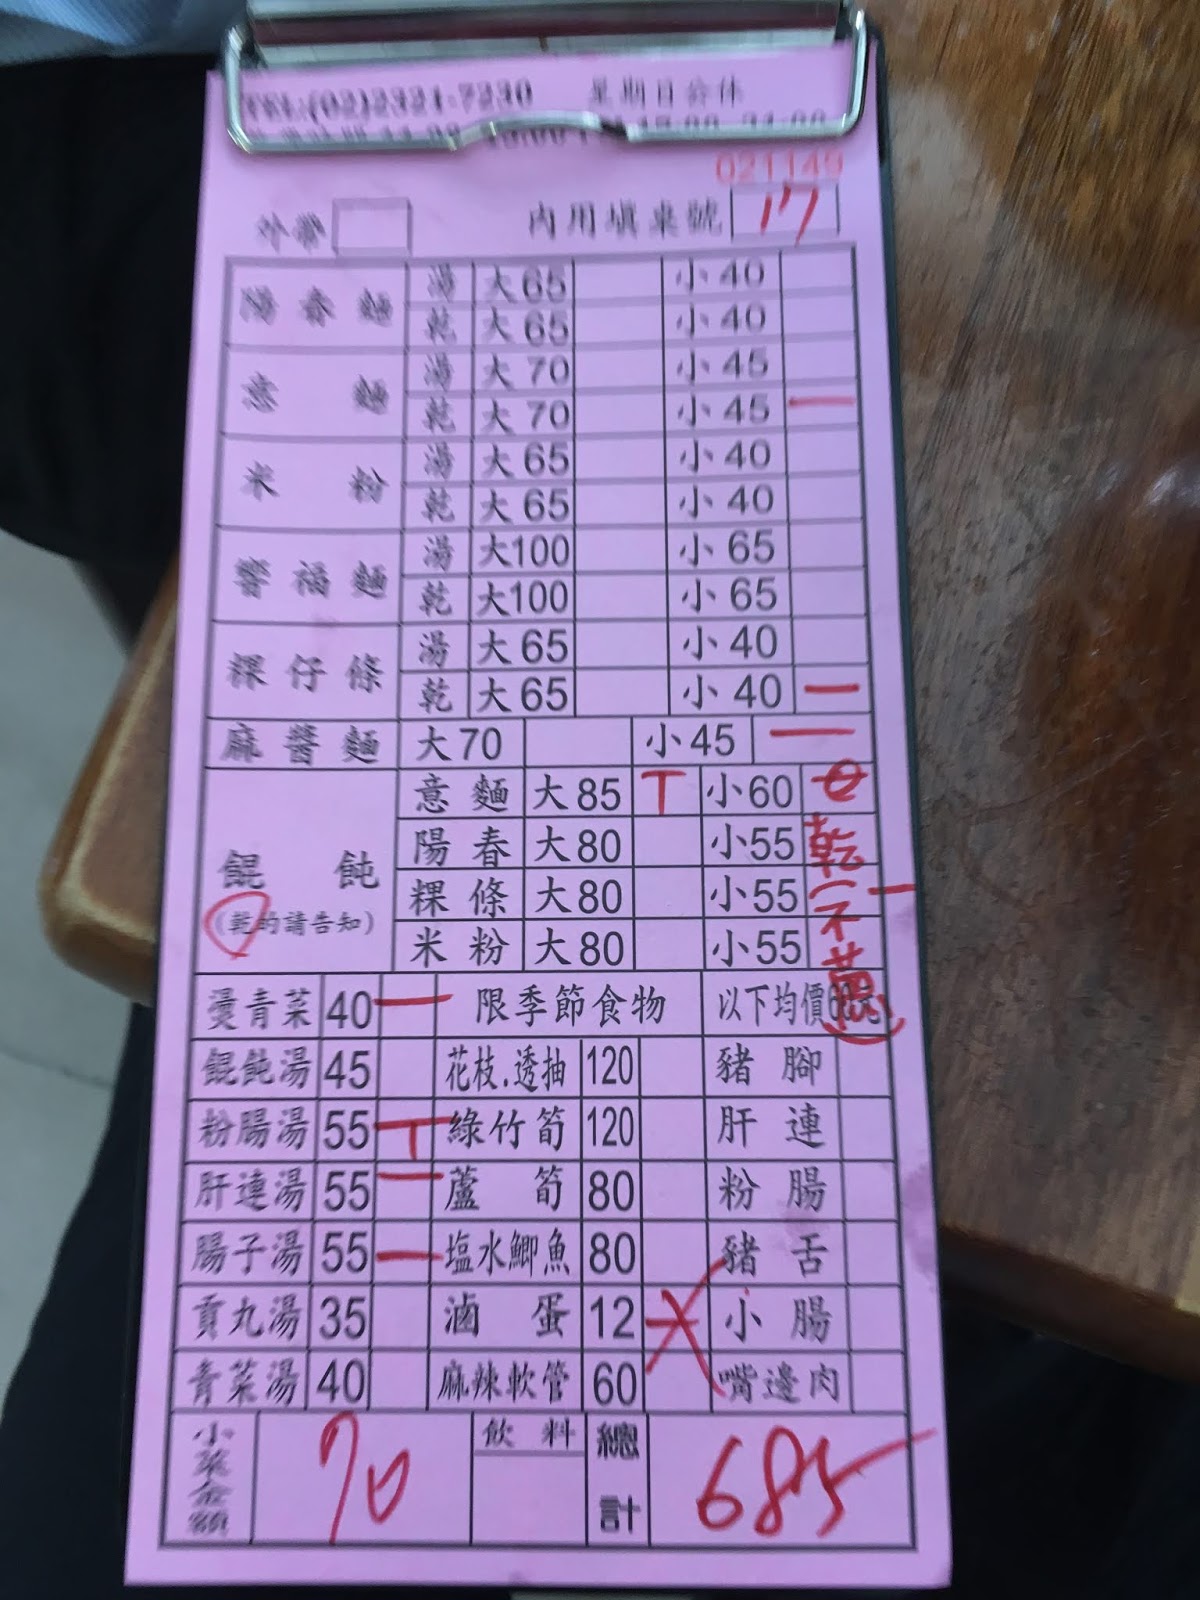 TEL:(02)2321-7230 星期日公休
021149
外帶 內用填桌號 17
陽春麵 湯 大65 小40
乾 大65 小40
意麵 湯 大70 小45
乾 大70 小45 一
米粉 湯 大65 小40
乾 大65 小40
響福麵 湯 大100 小65
乾 大100 小65
粿仔條 湯 大65 小40
乾 大65 小40 一
麻醬麵 大70 小45 一
餛飩 意麵 大85 T 小60
陽春 大80 小55 乾
(乾的請告知) 粿條 大80 小55 一
米粉 大80 小55 不
燙青菜 40 一 限季節食物 以下均價
餛飩湯 45 花枝.透抽 120 豬腳
粉腸湯 55 T 綠竹筍 120 肝連
肝連湯 55 一 蘆筍 80 粉腸
腸子湯 55 一 塩水鯽魚 80 豬舌
貢丸湯 35 滷蛋 12 小腸
青菜湯 40 麻辣軟管 60 嘴邊肉
小菜金額 70 飲料 總計 685